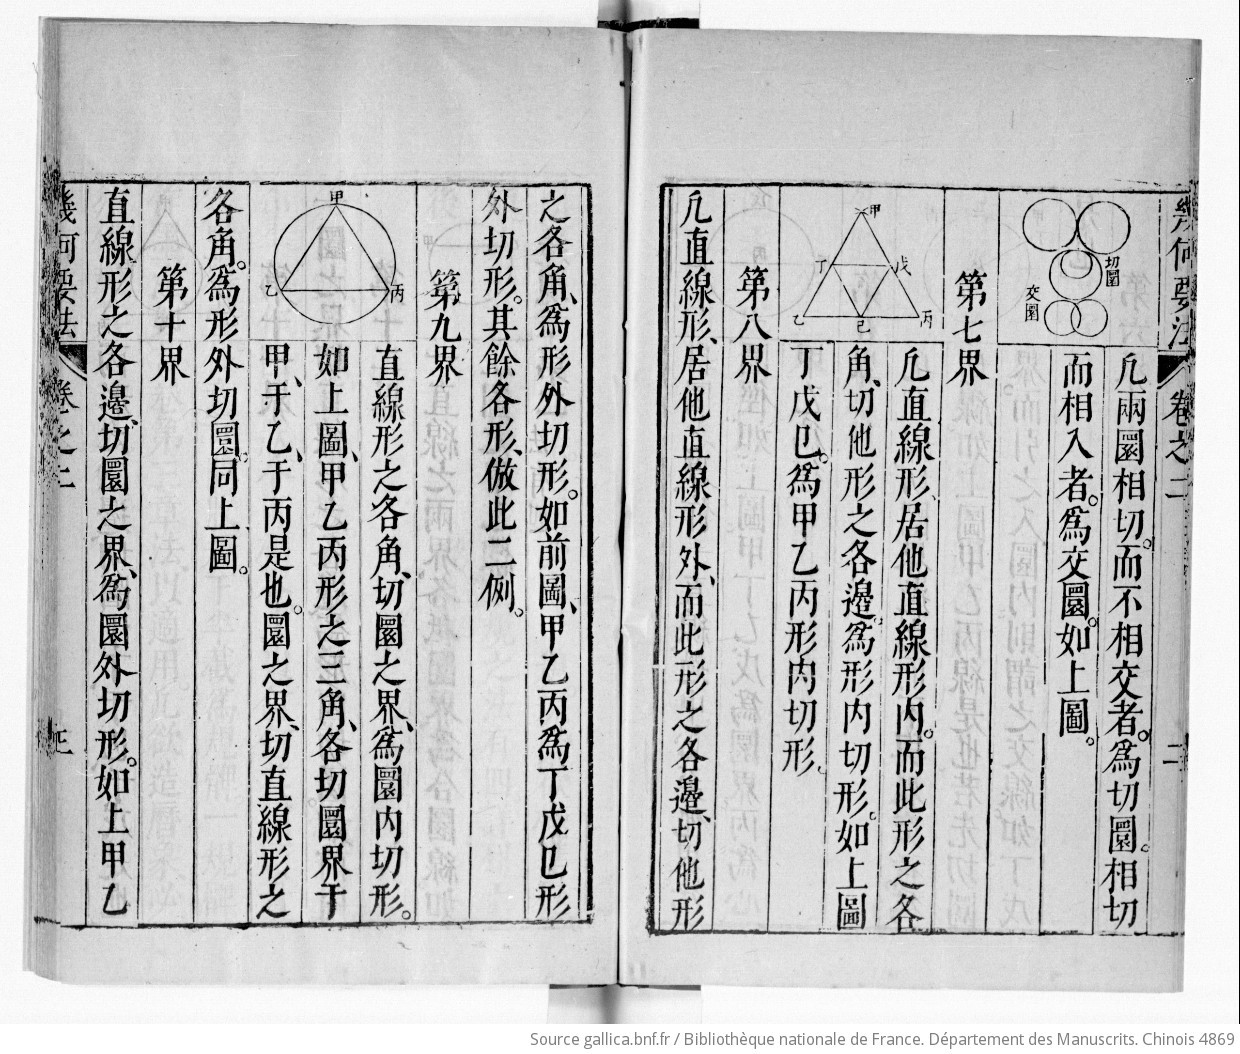 幾何要法
卷之二
二
切圜
交圜
凢兩圜相切。而不相交者。爲切圜。相切
而相入者。爲交圜。如上圖。
第七界
甲
丁
戊
乙
己
丙
凢直線形、居他直線形内。而此形之各
角、切他形之各邊。爲形内切形。如上圖
丁戊巳。爲甲乙丙形内切形。
第八界
凢直線形、居他直線形外、而此形之各邊、切他形
之各角、爲形外切形。如前圖、甲乙丙爲丁戊巳形
外切形。其餘各形、倣此二例。
第九界
甲
乙
丙
直線形之各角、切圜之界、爲圜内切形。
如上圖、甲乙丙形之三角、各切圜界于
甲、于乙、于丙是也。圜之界、切直線形之
各角。爲形外切圜。同上圖。
第十界
直線形之各邊、切圜之界、爲圜外切形。如上甲乙
幾何要法
卷之二
Source gallica.bnf.fr / Bibliothèque nationale de France. Département des Manuscrits. Chinois 4869